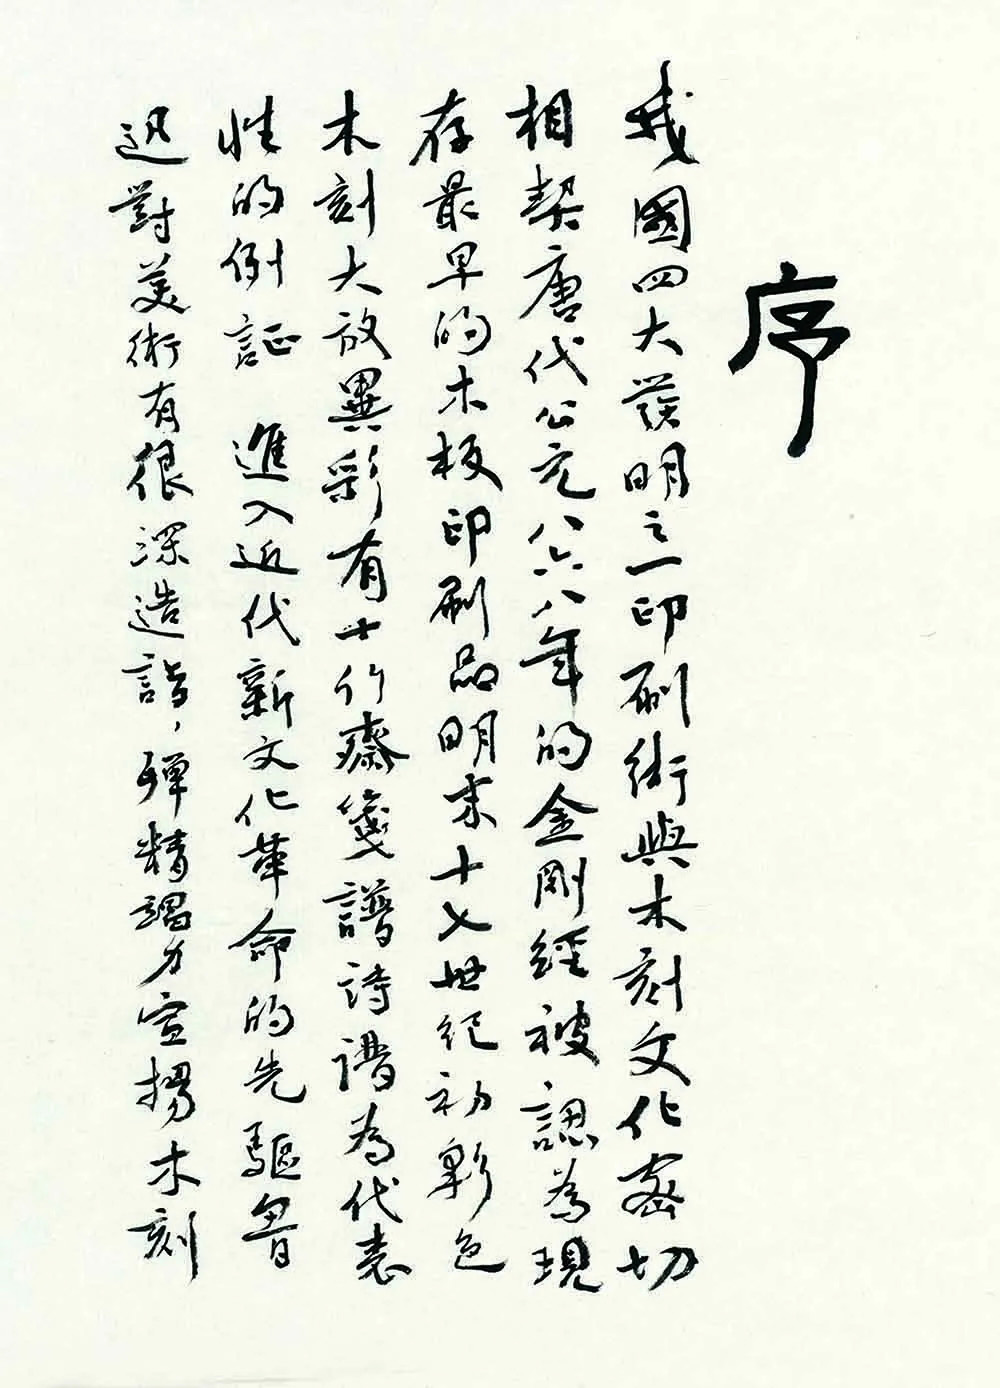 序
我國四大發明之一印刷術與木刻文化密切
相契唐代公元八六八年的金剛經被認為現
存最早的木板印刷品明末十七世紀初彩色
木刻大放異彩有十竹齋箋譜詩譜為代表
性的例証 進入近代新文化革命的先驅魯
迅對美術有很深造詣，殫精竭力宣揚木刻